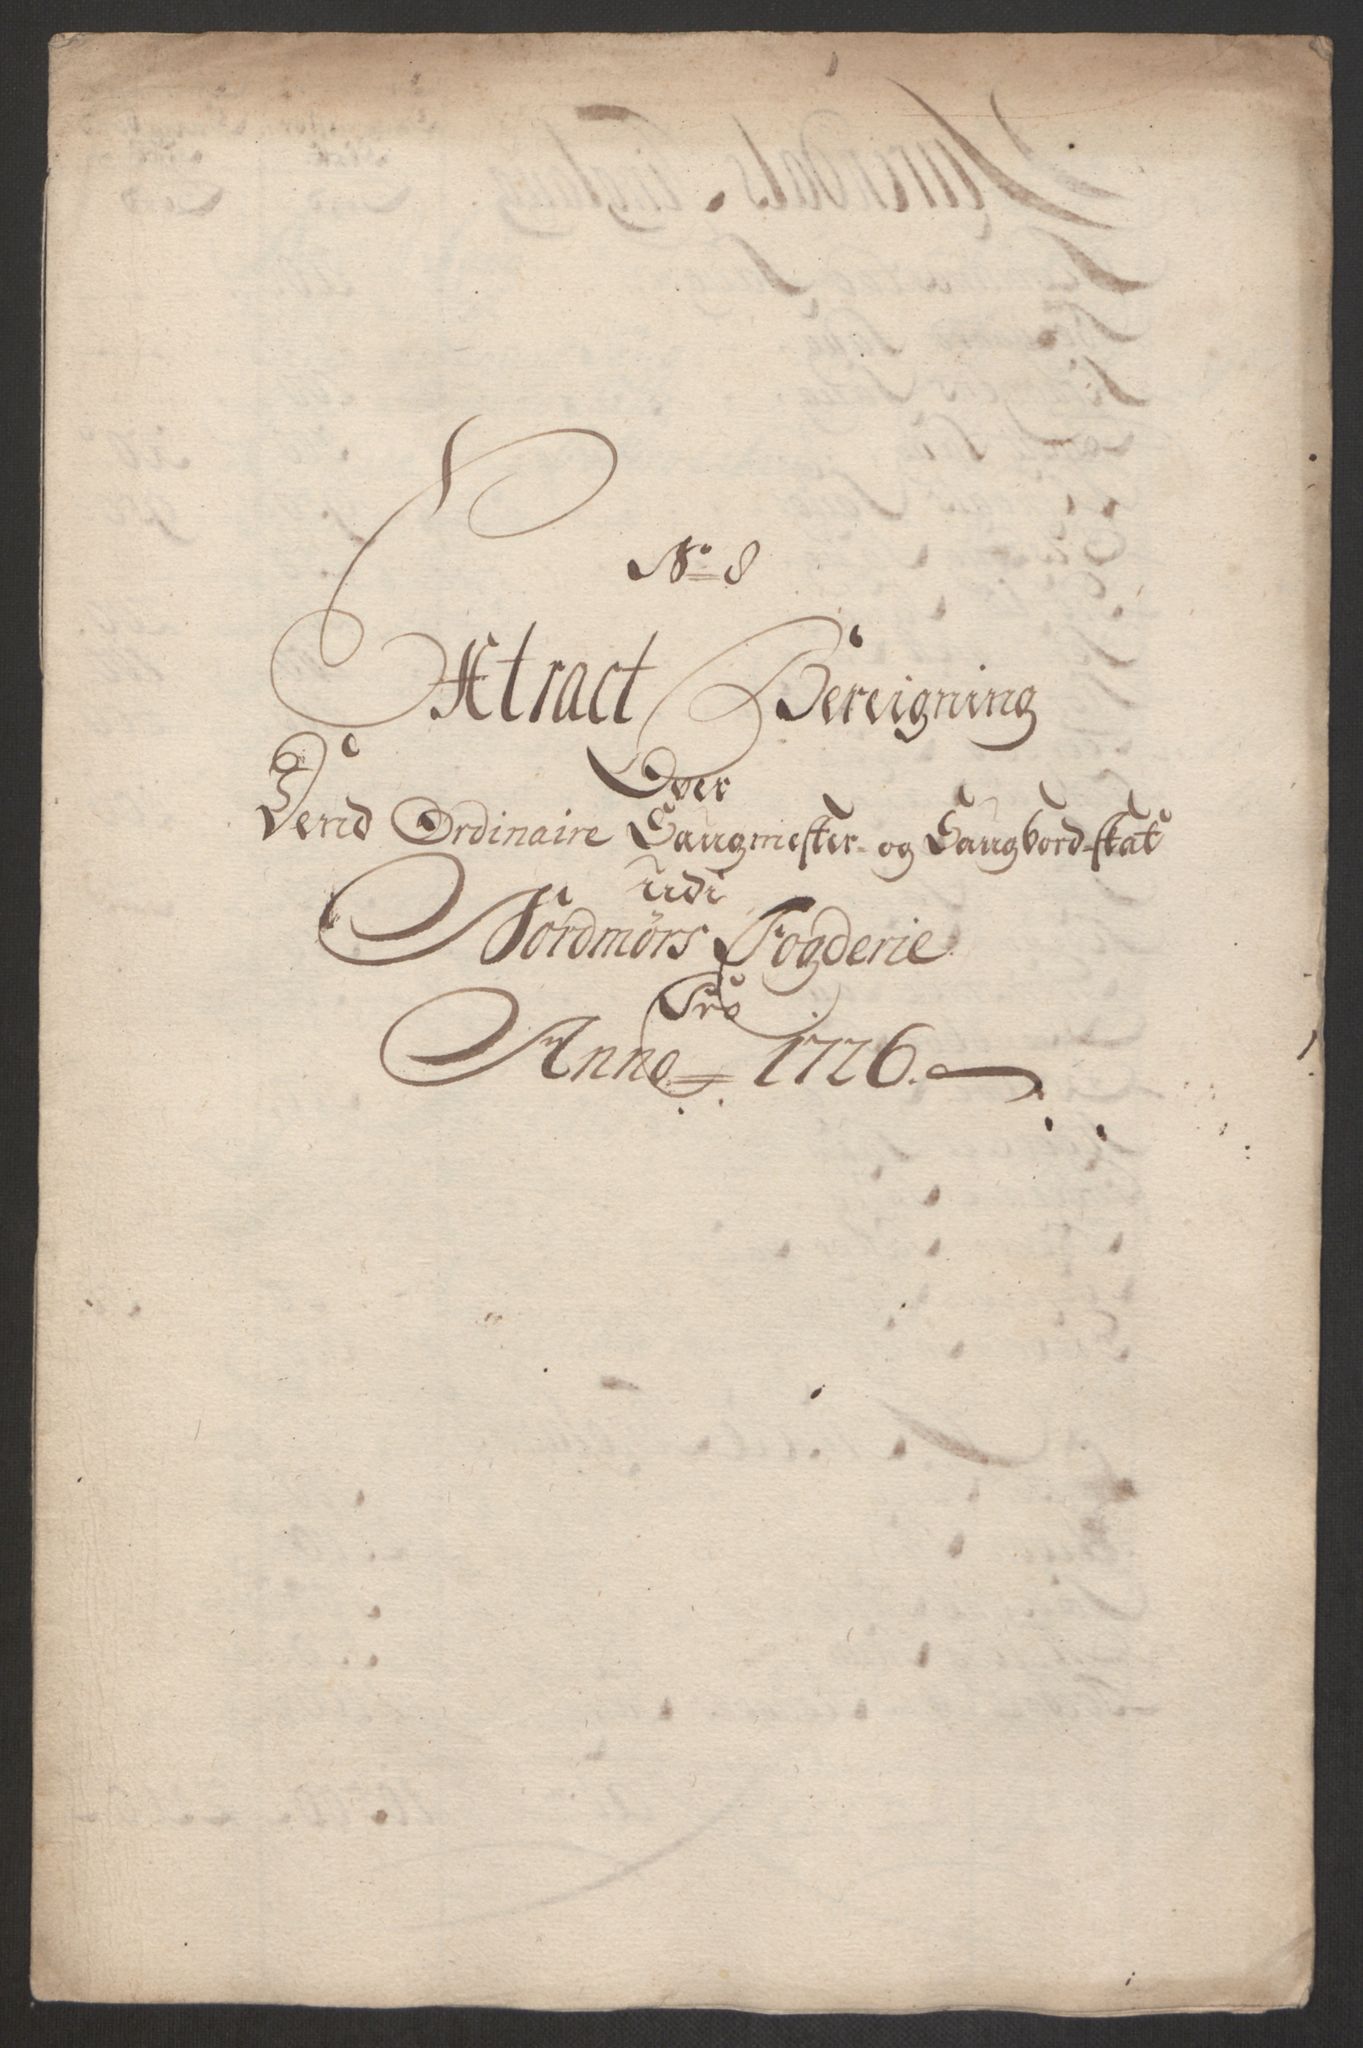 No 8
Extract Bereigning
Over
Dend Ordinaire Saugmester- og Saugbord-skat
udi
Nordmørs Fogderie
Pro
Anno 1726.